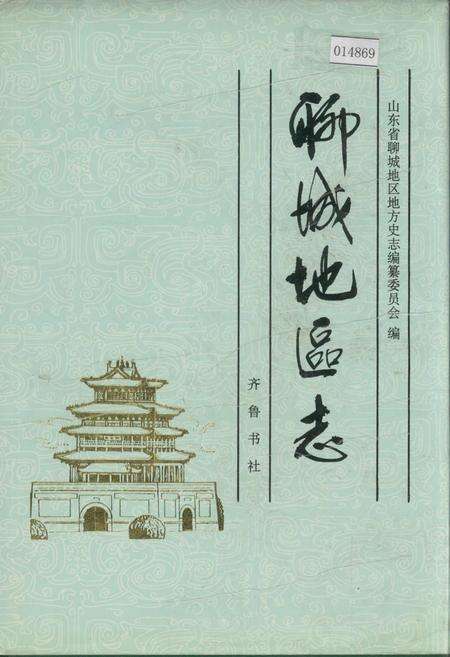 014869
山东省聊城地区地方史志编纂委员会 编
聊城地區志
齐鲁书社